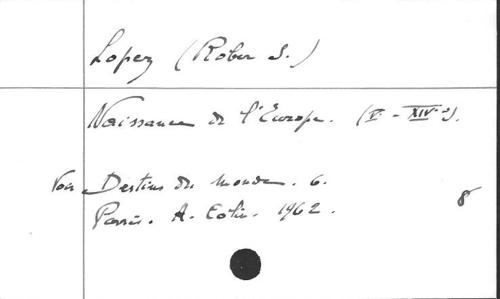 Lopez (Rober S.)
Naissance de l'Europe. (V - XIVe s).
Voir Destins du monde. 6.
Paris. A. Colin. 1962.
8